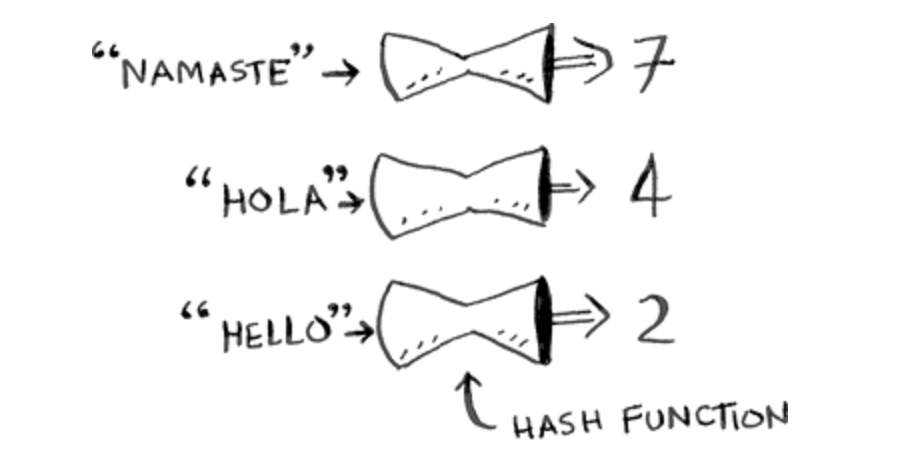 “NAMASTE” → 7
“HOLA” → 4
“HELLO” → 2
HASH FUNCTION